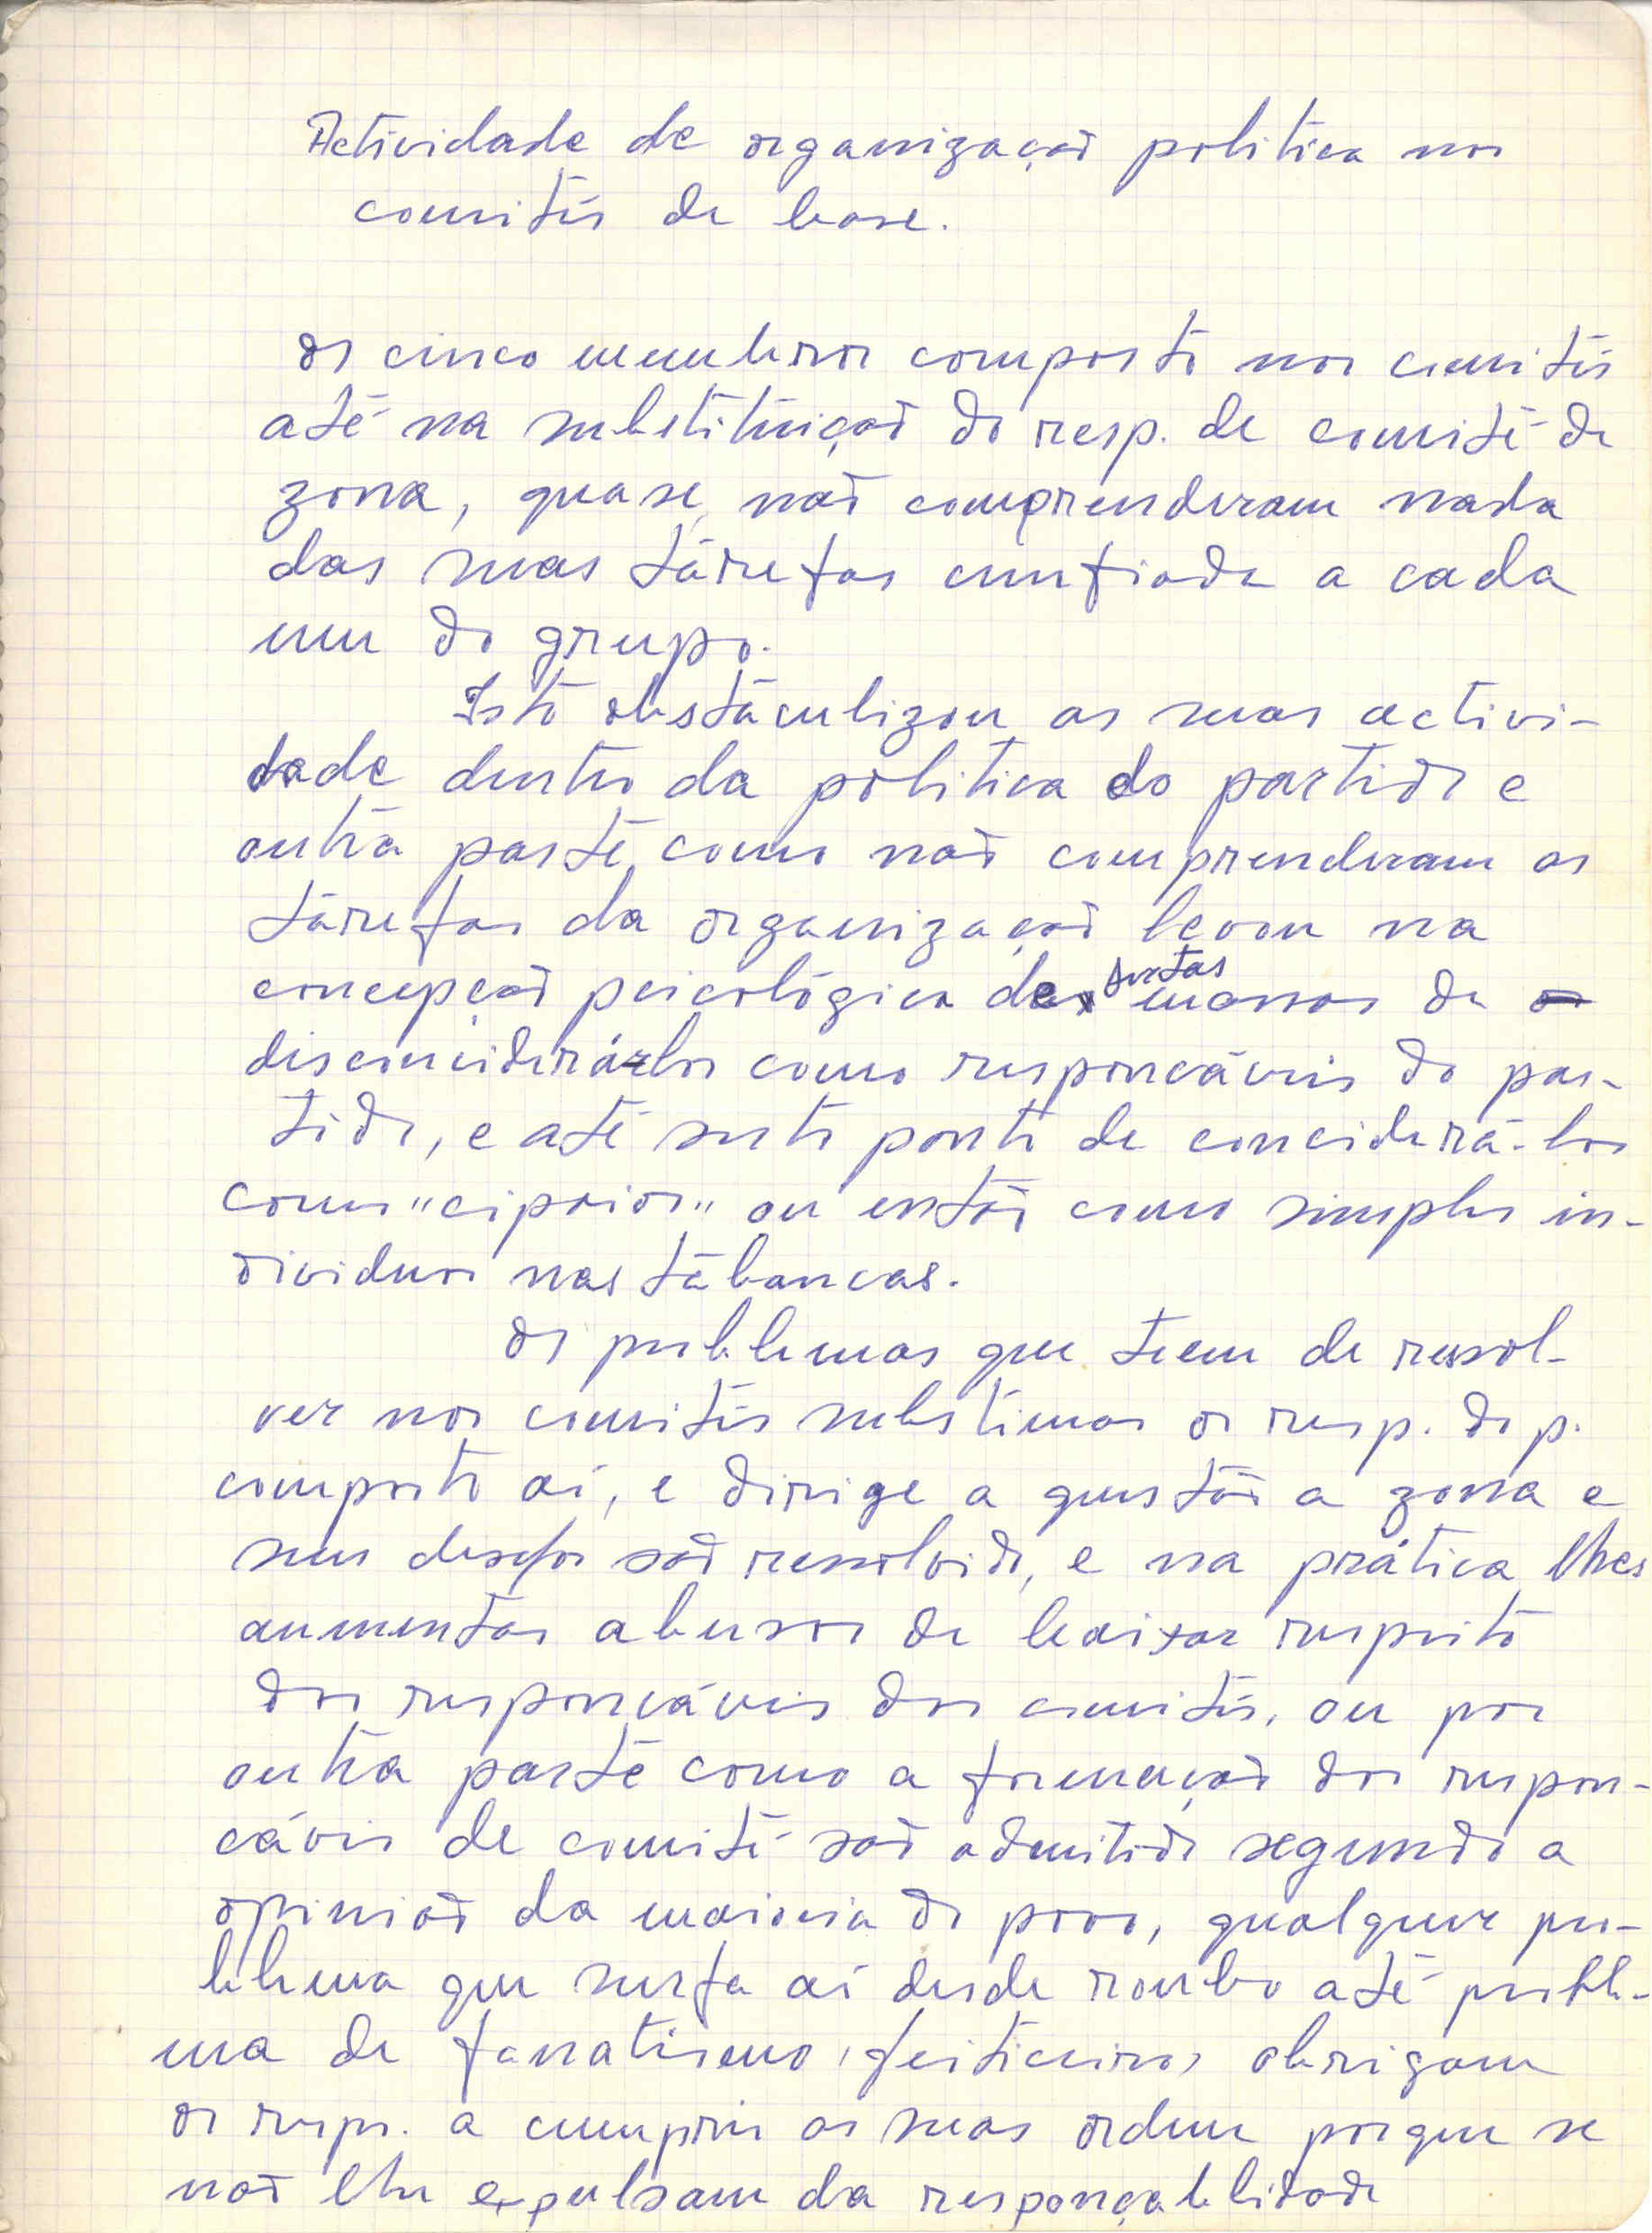 Actividade de organização politica nos
comités de base.
Os cinco membros composto nos comités
até na substituição do resp. de comité de
zona, quase não comprenderam nada
das suas tárefas confiada a cada
um do grupo.
Isto obstáculizou as suas activi-
dade dentro da politica do partido e
outra parte, como não comprenderam as
tárefas da organização levou na
concepção psicológica de surtas massas de
disconciderá-los como responcáveis do par-
tido, e até surto ponto de conciderá-los
como "cipaios" ou então como simples in-
dividuos nas tábancas.
Os problemas que teem de resol-
ver nos comités substimas os resp. do p.
composto aí, e dirige a questão a zona e
seus desejos são resolvido, e na prática lhes
aumentas abusos de baixar respeito
dos responcáveis dos comités, ou por
outra parte como a formação dos respon-
cáveis de comité são admitido segundo a
opinião da maioria do povo, qualquer pro-
blema que surja aí desde roubo até proble-
ma de fanatismo, feiticeiros, obrigam
os resps. a cumprir as suas ordem porque se
não lhe expulsam da responçablidade